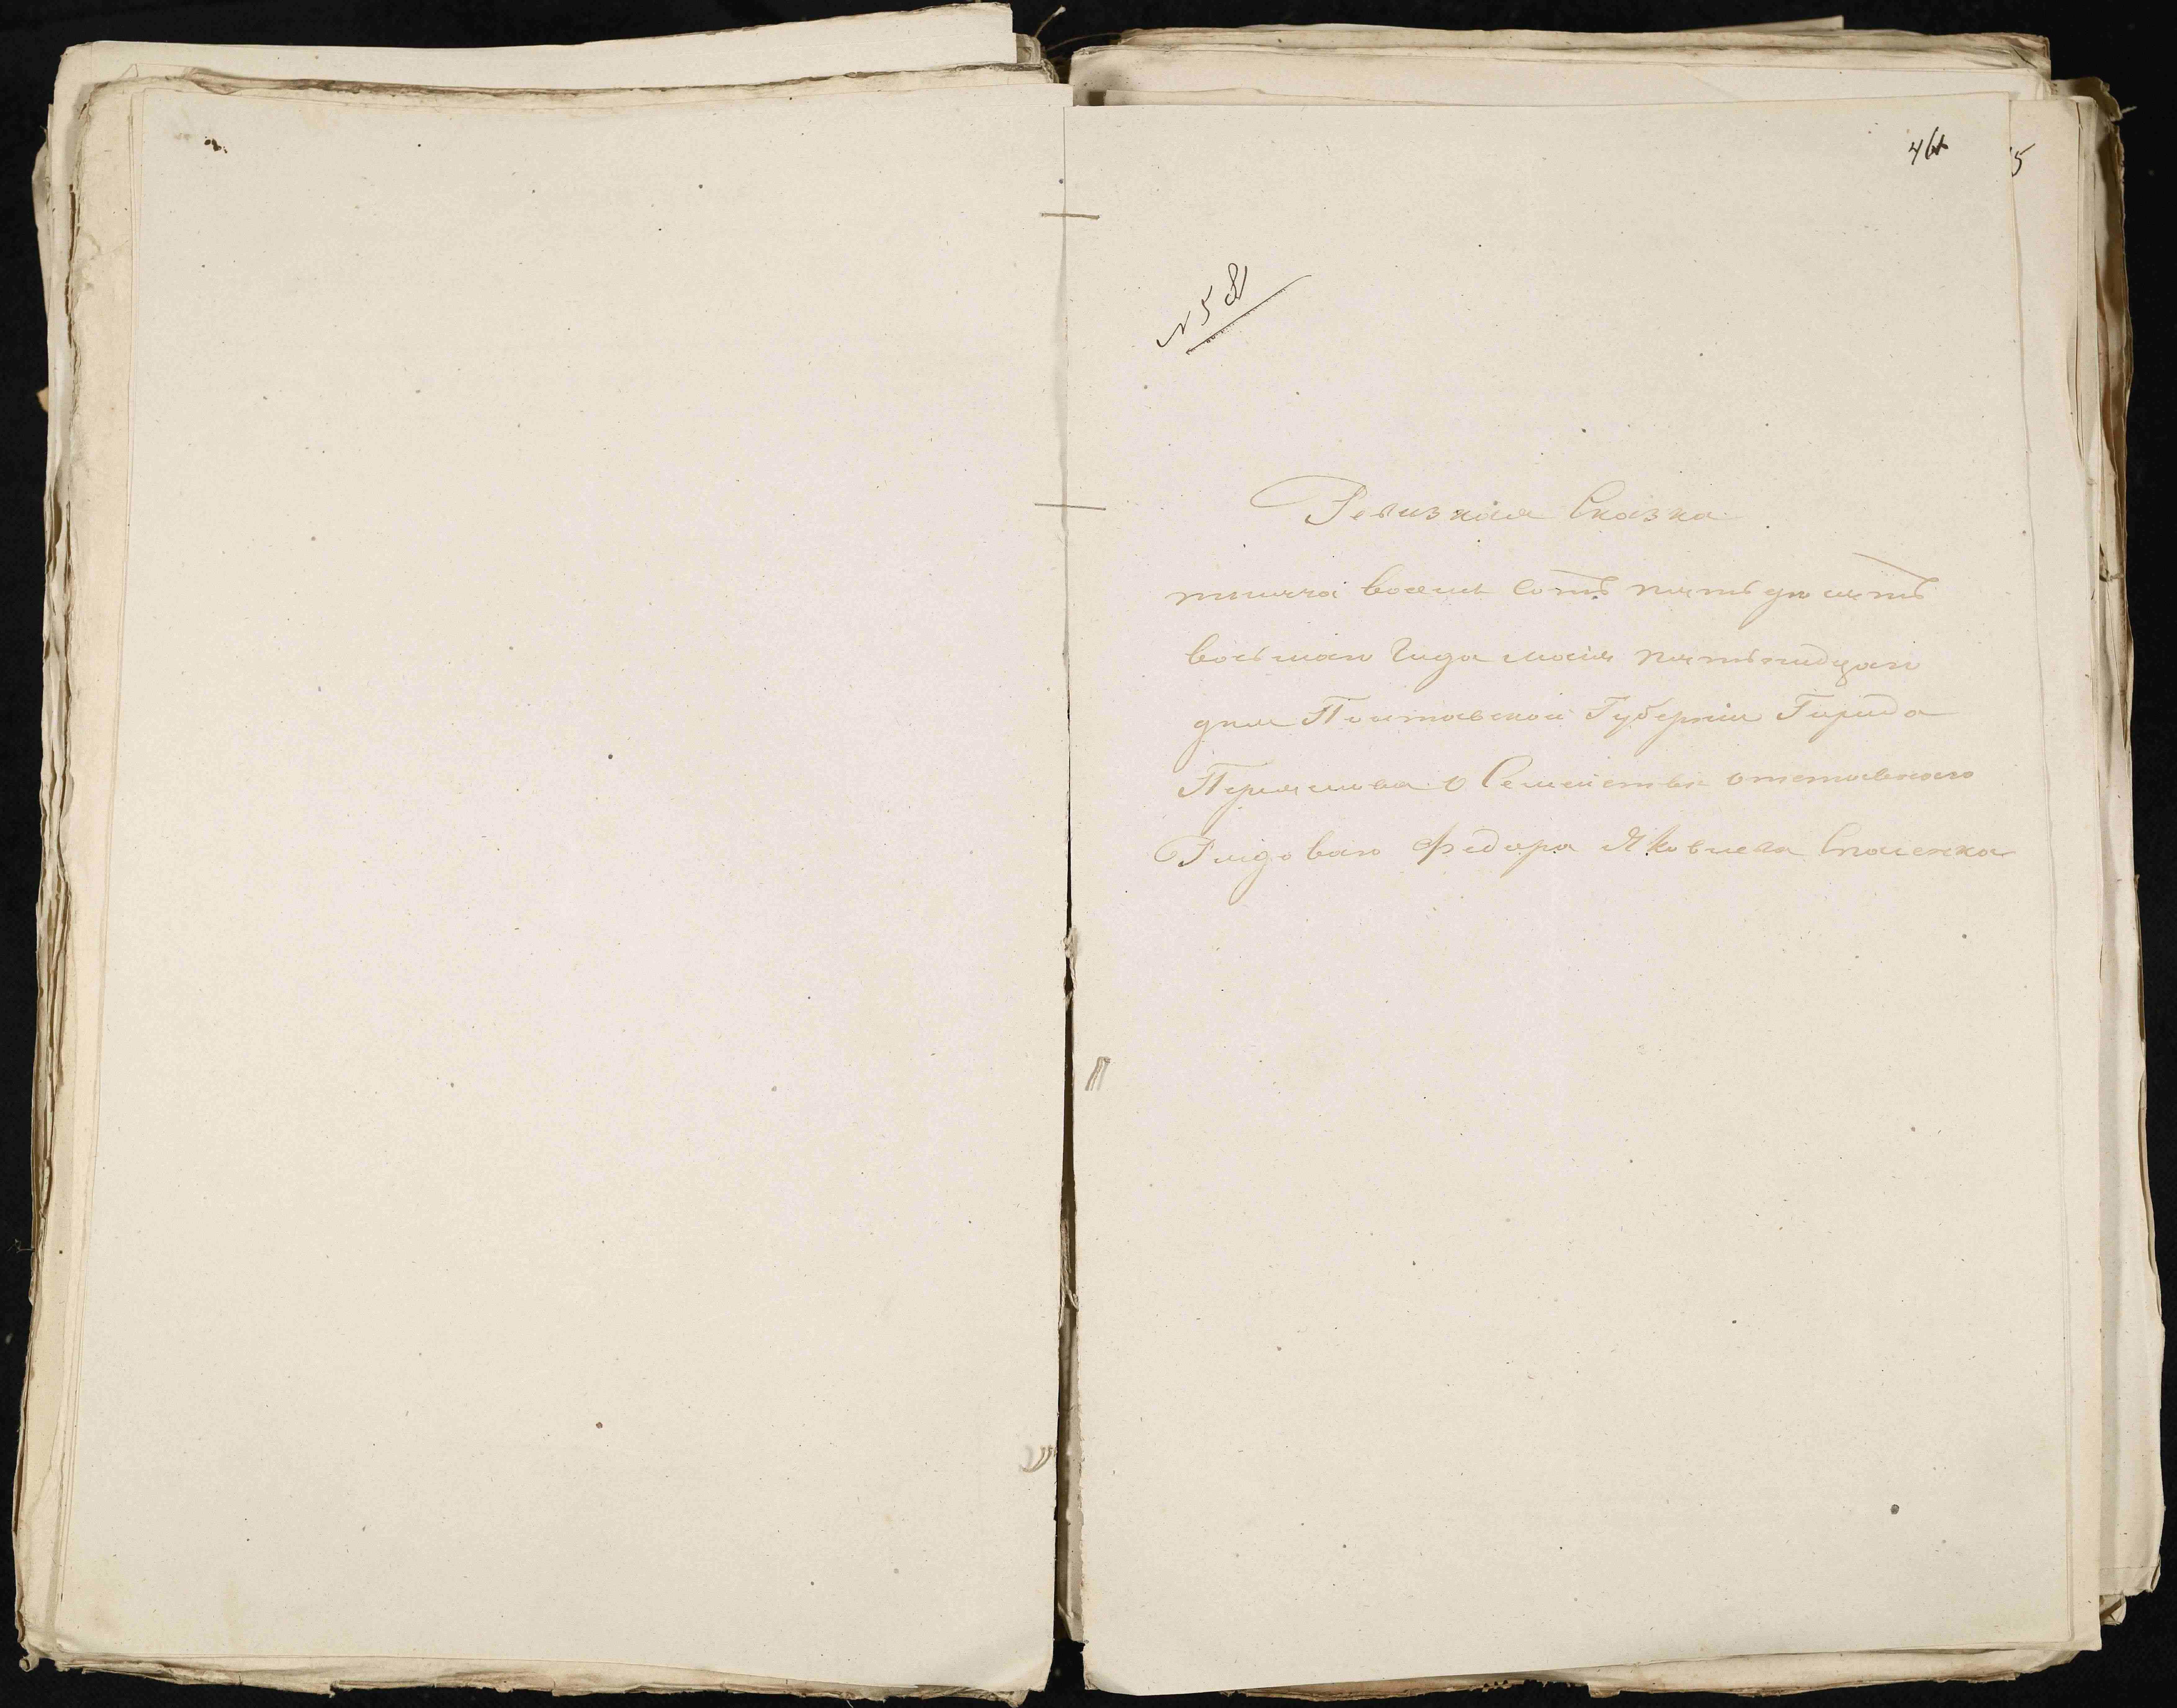 461
5
N 58
Ревизкая Сказка
тысяча восемь сотъ пятьдесятъ
восьмаго Года маія пятьнадцаго
дня Полтавской Губерніи Города
Перяслова о Семействѣ отставнаго
Рядоваго Федора Яковлева